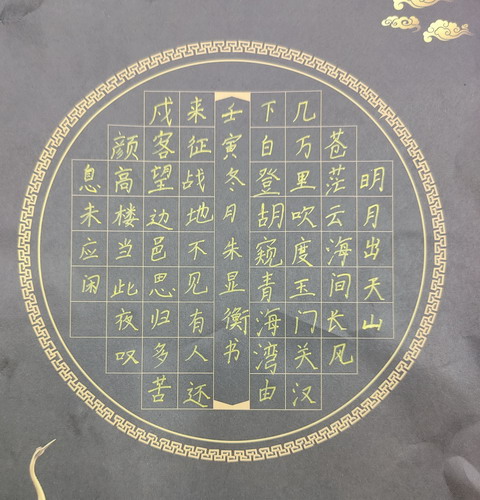 明月出天山
苍茫云海间长风
几万里吹度玉门关汉
下白登胡窥青海湾由
壬寅冬月朱显衡书
来征战地不见有人还
戍客望边邑思归多苦
颜高楼当此夜叹
息未应闲